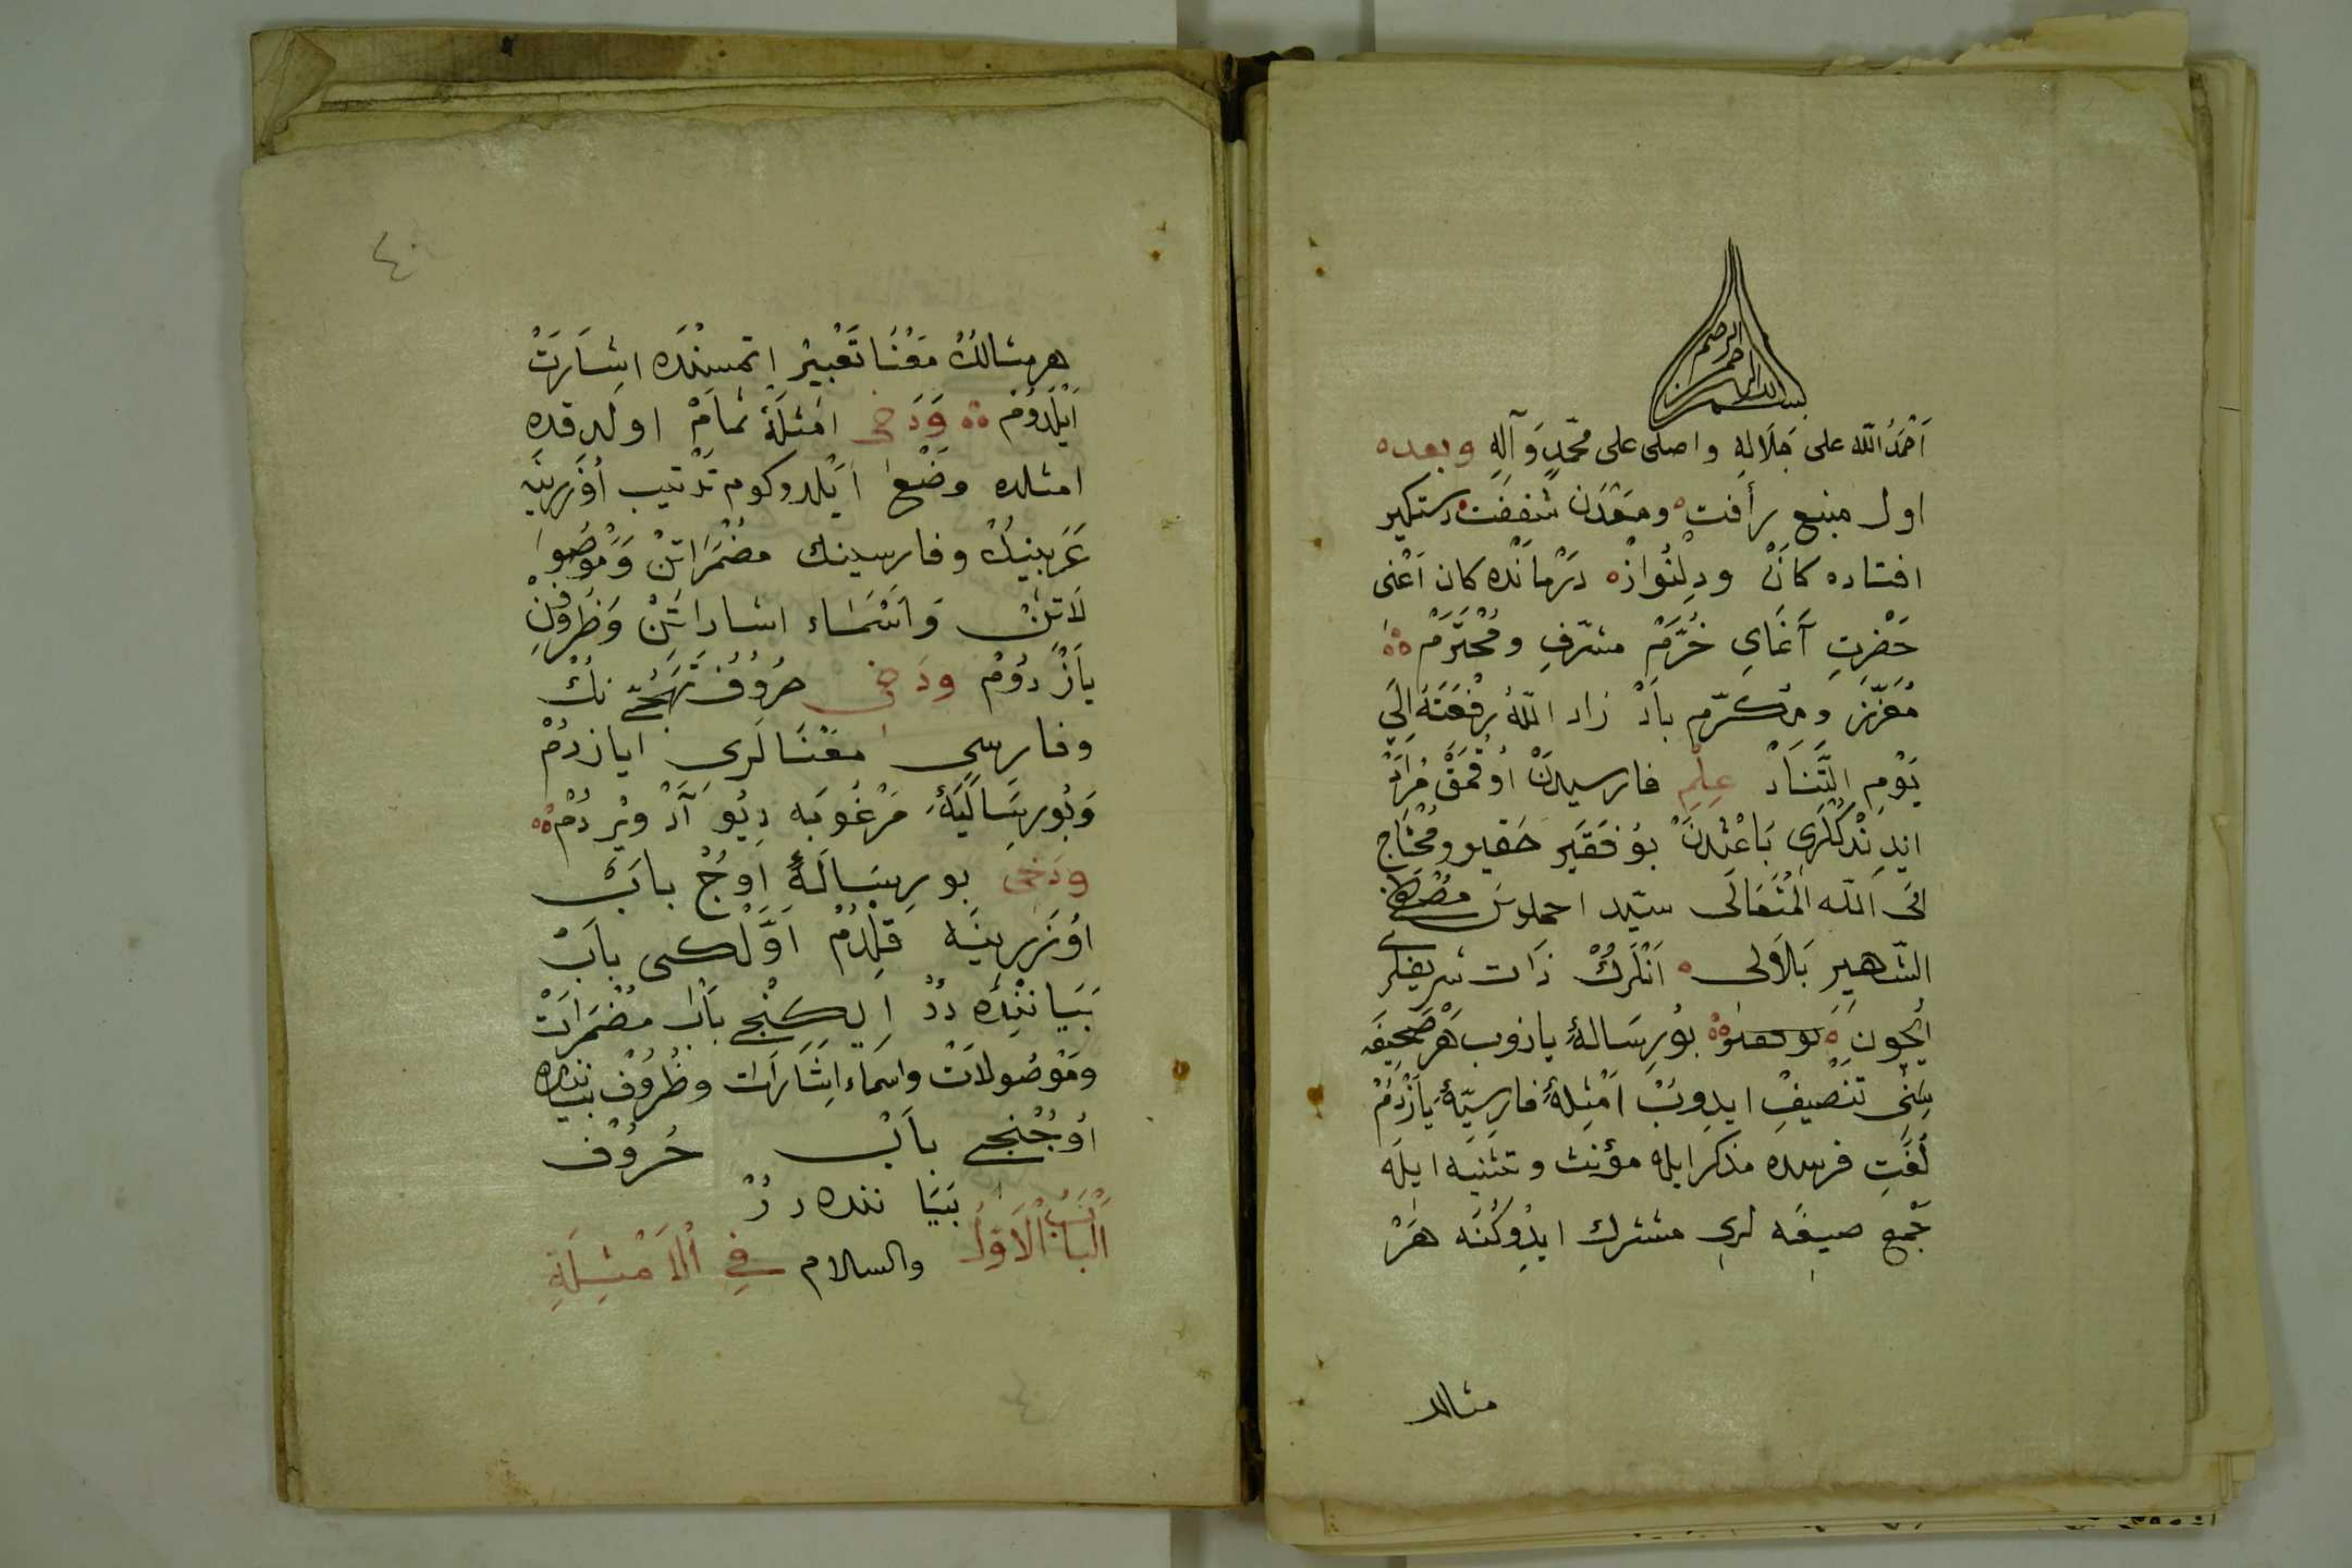 بسم الله الرحمن الرحيم
اَحْمَدُ الله على جَلَالِهِ واصلى على محمّدٍ وَآلِهِ وبعده
اول منبع رأفت ومَعْدَن شَفَقَت دستكير
افتاده كانْ ودِلْنُوازْ درْمانْده كان اَعْنى
حَضْرتِ آغَايِ خُرَّمْ مشرّفِ ومُحْتَرَمْ
مُعَزّز ومكرّم بادْ زاد اللّهُ رِفْعَتَهُ اِلَى
يَوْمِ التَّنَادْ عِلْمِ فارسيدن اوُقُمَقْ مُرَادْ
ايدِنْدكْلَرى بَاعِثْدنْ بوُ فَقير حَقير ومُحْتَاج
الى اللّه الْمُتَعَالَى سيّد احمد بن مصطفى
الشّهيرِ بَلَاوَلى اَنْلَرِكْ ذَات شريفلر
اُيچون بوُرِسَالهٔ يازوب هَرْ صَحيفَه
سِنى تَنْصيفْ ايدوبْ اَمْثِلهٔ فارسيّهٔ يَازْدُمْ
لُغَتِ فرسده مذكر ايله مؤنث وتثنيه ايله
جَمْع صيغَه لرى مشترك ايدوكُنَه هَرْ
مثالك
٤٠
هر مثالكْ مَعْنَا تَعْبيرْ اتمسِنْدَه اشَارَتْ
اَيْلَدوُمْ وَدَخى اَمْثِلَهٔ تمَامْ اولدقده
امثلده وَضْعْ اَيْلدوكوم تَرْتيب اُوزَرينَه
عَرَبينِكْ وفارسينك مضْمَرَاتِنْ وَمَوْصُوا
لَاتِنْ وَاَسْمَاء اشاراتِنْ وَظُرُوفِنْ
يَازْدوُمْ ودَخى حروُف تَهَجّى نكْ
وفارسى مَعْنَا لَرى ايازدمْ
وَبُورِسَالَيَهٔ مَرْغُوبَه ديُو آدْ ويْردُمْ
ودَخى بورِسَالَهٔ اوُچ بابْ
اوُزَرِينَه قِلْدُمْ اَوَّلْكى بابْ
بَيَانِنْدَه دُرْ اِيكِنْجى بابْ مُضْمَرَاتْ
ومَوْصُولَاتْ واسماء اِشَارَات وظُرُوفْ بيَاننده
اوُچُنْجى بابْ حُروُف
بَيَا ننده د رْ
اَلْبَابُ اْلاَوَّلُ والسلام فِى اْلاَمْثِلَةِ